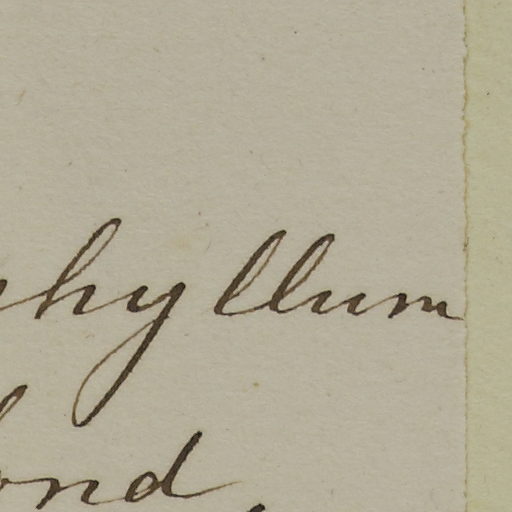 hyllum
ond